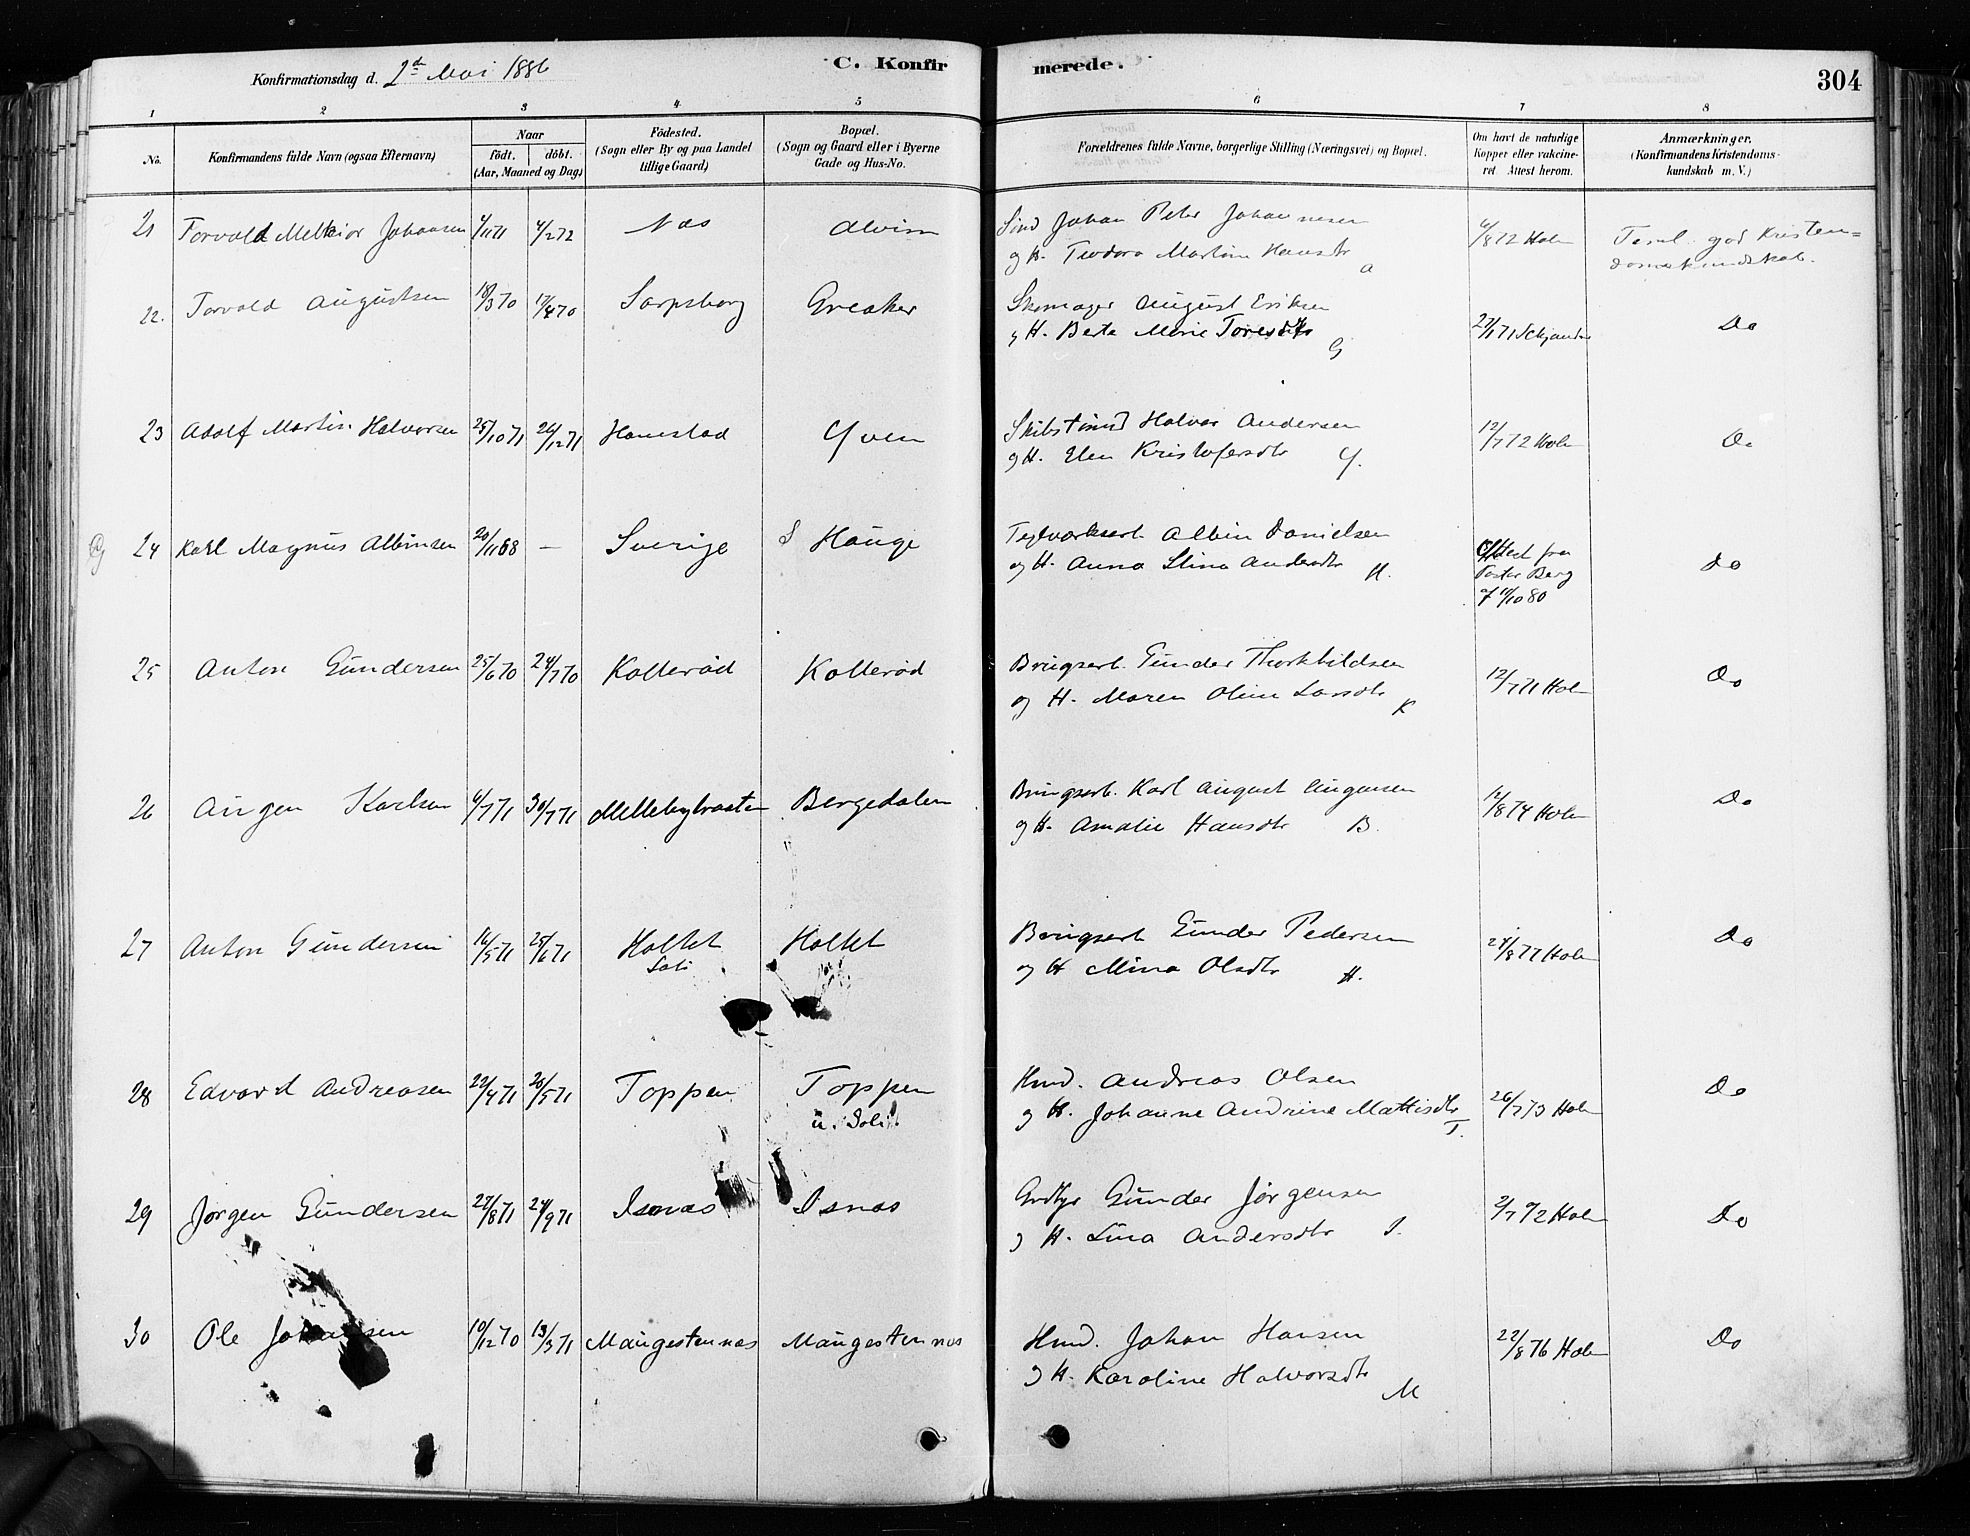 Konfirmationsdag d. 2d Mai 1886
C. Konfirmerede.
304
1 2 3 4 5 6 7 8
No.
Konfirmandens fulde Navn (ogsaa Efternavn)
Naar
födt. döbt.
(Aar, Maaned og Dag)
Födested.
(Sogn eller By og paa Landet
tillige Gaard)
Bopæl.
(Sogn og Gaard eller i Byerne
Gade og Hus-No.
Forældrenes fulde Navne, borgerlige Stilling (Næringsvei) og Bopæl.
Om havt de naturlige
Kopper eller vakcine-
ret Attest herom.
Anmærkninger.
(Konfirmandens Kristendoms-
kundskab m. V.)
21 Torvald Melkior Johansen 4/11 71 4/2 72 Næs Alvim Sind Johan Peter Johannesen 6/8 72 Holm Temel. god Kristen=
og H. Teodora Martine Hansdtr a domskundskab.
22. Torvald Augustsen 18/3 70 17/4 70 Sarpsborg Greaker Skomager August Eriksen
og H. Berte Marie Toresdtr G 27/11 71 Do
23 Adolf Martin Halvorsen 25/10 71 26/12 71 Hanestad Yven Skibstømd Halvor Andersen 12/7 72 Holm Do
og H. Elen Kristofersdtr Y.
24 Karl Magnus Albinsen 20/11 68 — Sverige S Hauge Teglværksarb Albin Danielsen
og H. Anna Stina Andersdtr H. Attest fra
Pastor Berg
af 11/10 80 do
25 Anton Gundersen 25/6 70 24/7 70 Kollerød Kollerød Brugsarb. Gunder Thorkildsen 12/7 71 Holm Do
og H. Maren Oline Larsdtr K
26 Augen Karlsen 4/7 71 30/7 71 Mellebybraaten Bergedalen Brugsarb. Karl August Augensen 12/8 74 Holm Do
og H. Amalie Hansdtr B.
27 Anton Gundersen 16/5 71 25/6 71 Holtet Holtet Brugsarb Gunder Pedersen 24/8 77 Holm Do
Soli
og H Mina Olsdtr H.
28 Edvard Andreasen 22/4 71 26/5 71 Toppen Toppen Hmd. Andreas Olsen
u. Soli og H. Johanne Andrine Mattisdtr T. 26/7 73 Holm Do
29 Jørgen Gundersen 27/8 71 24/9 71 Isnæs Isnæs Grdbr Gunder Jørgensen 2/7 72 Holm Do
og H. Lina Andersdtr I.
30 Ole Johansen 10/12 70 13/3 71 Maugestennæs Maugestennæs Hmd. Johan Hansen 22/8 76 Holm Do
og H. Karoline Halvorsdtr M